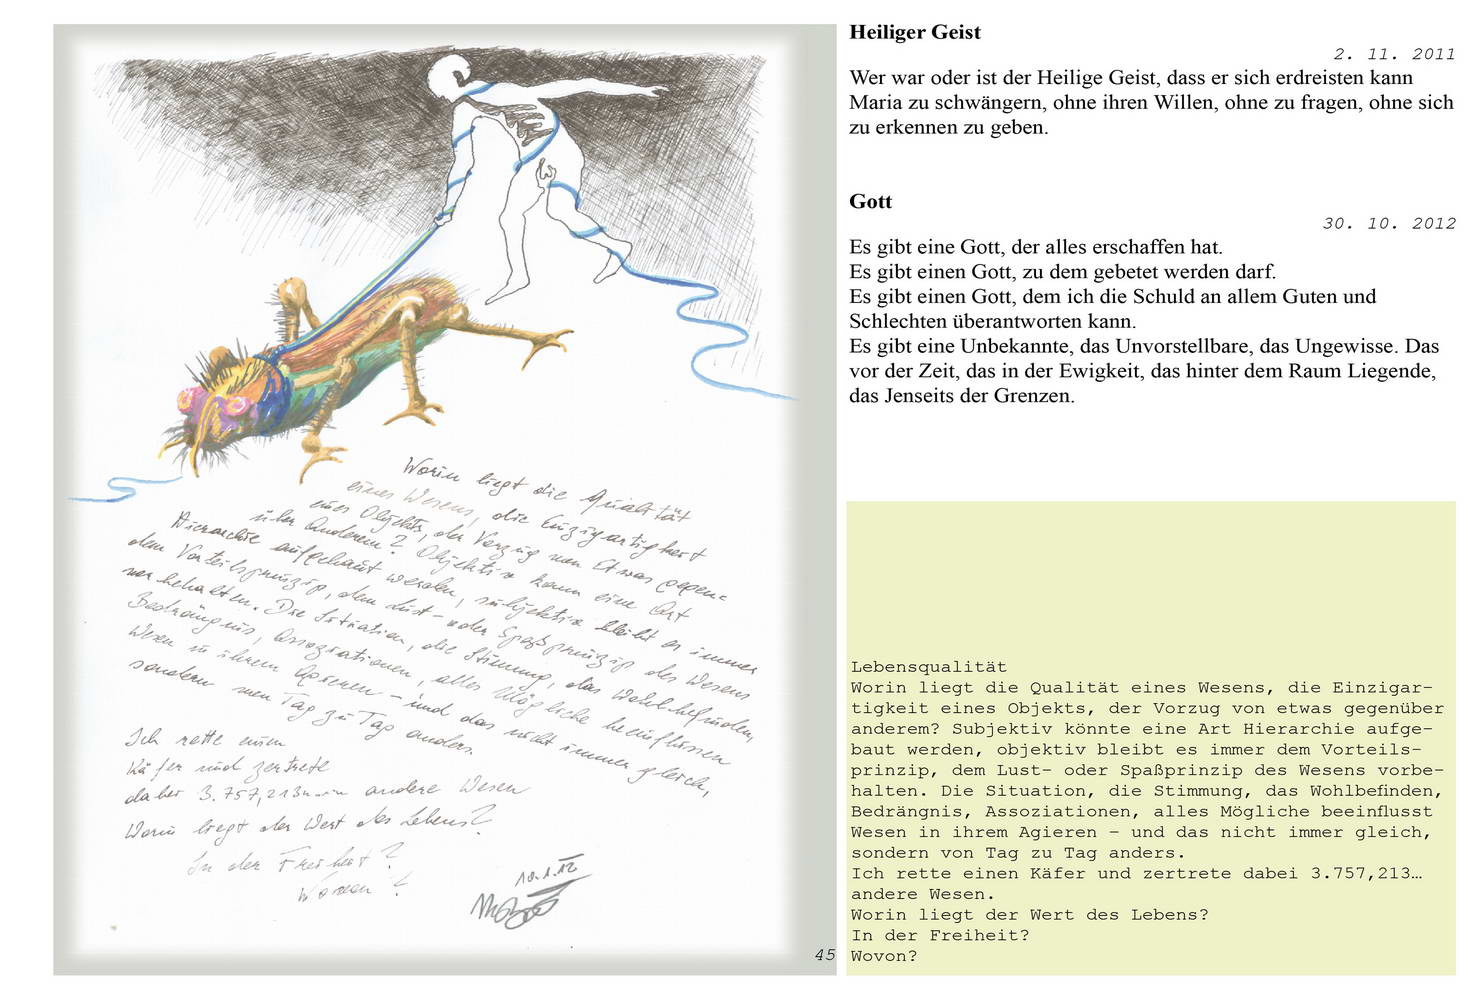 Worin liegt die Qualität
eines Wesens, die Einzigartigkeit
eines Objekts, der Vorzug von Etwas gegen=
über Anderem? Objektiv kann eine Art
Hierarchie aufgebaut werden, subjektiv bleibt es immer
dem Vorteilsprinzip, dem Lust- oder Spaßprinzip des Wesens
vorbehalten. Die Situation, die Stimmung, das Wohlbefinden,
Bedrängnis, Assoziationen, alles Mögliche beeinflussen
Wesen in ihrem Agieren – und das nicht immer gleich,
sondern von Tag zu Tag anders.
Ich rette einen
Käfer und zertrete
dabei 3.757,213 andere Wesen
Worin liegt der Wert des Lebens?
In der Freiheit?
Wovon?
10.1.12
45
Heiliger Geist
2. 11. 2011
Wer war oder ist der Heilige Geist, dass er sich erdreisten kann
Maria zu schwängern, ohne ihren Willen, ohne zu fragen, ohne sich
zu erkennen zu geben.
Gott
30. 10. 2012
Es gibt eine Gott, der alles erschaffen hat.
Es gibt einen Gott, zu dem gebetet werden darf.
Es gibt einen Gott, dem ich die Schuld an allem Guten und
Schlechten überantworten kann.
Es gibt eine Unbekannte, das Unvorstellbare, das Ungewisse. Das
vor der Zeit, das in der Ewigkeit, das hinter dem Raum Liegende,
das Jenseits der Grenzen.
Lebensqualität
Worin liegt die Qualität eines Wesens, die Einzigar-
tigkeit eines Objekts, der Vorzug von etwas gegenüber
anderem? Subjektiv könnte eine Art Hierarchie aufge-
baut werden, objektiv bleibt es immer dem Vorteils-
prinzip, dem Lust- oder Spaßprinzip des Wesens vorbe-
halten. Die Situation, die Stimmung, das Wohlbefinden,
Bedrängnis, Assoziationen, alles Mögliche beeinflusst
Wesen in ihrem Agieren – und das nicht immer gleich,
sondern von Tag zu Tag anders.
Ich rette einen Käfer und zertrete dabei 3.757,213…
andere Wesen.
Worin liegt der Wert des Lebens?
In der Freiheit?
Wovon?